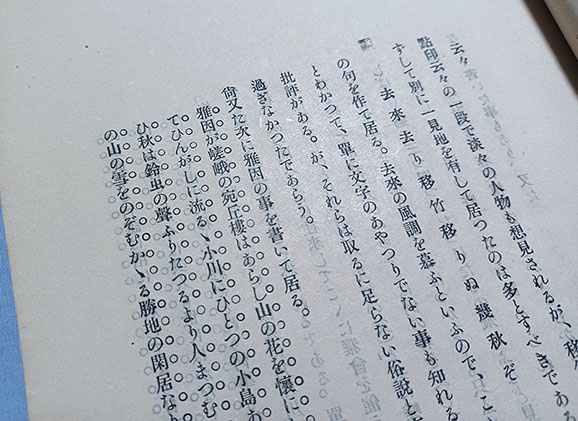 云々の一段で淡々の人物も想見されるが、移
點印云々
ずして別に一見地を有して居つたのは多とすべきである
去來去り移竹移りぬ幾秋ぞ
の句を作て居る。去來の風調を慕ふといふので、こ
とわかつて、單に文字のあやつりでない事も知れる
批評がある。が、それらは取るに足らない俗說と
過ぎなかつたであらう。
尙又た次に雅因の事を書いて居る。
雅因が嵯峨の宛丘樓はあらし山の花を懷に
てひんがしに流るゝ小川にひとつの小島あ
ひ秋は鈴虫の聲ふりたつるより人まつむ
の山の雪をのぞむかゝる勝地の閑居な